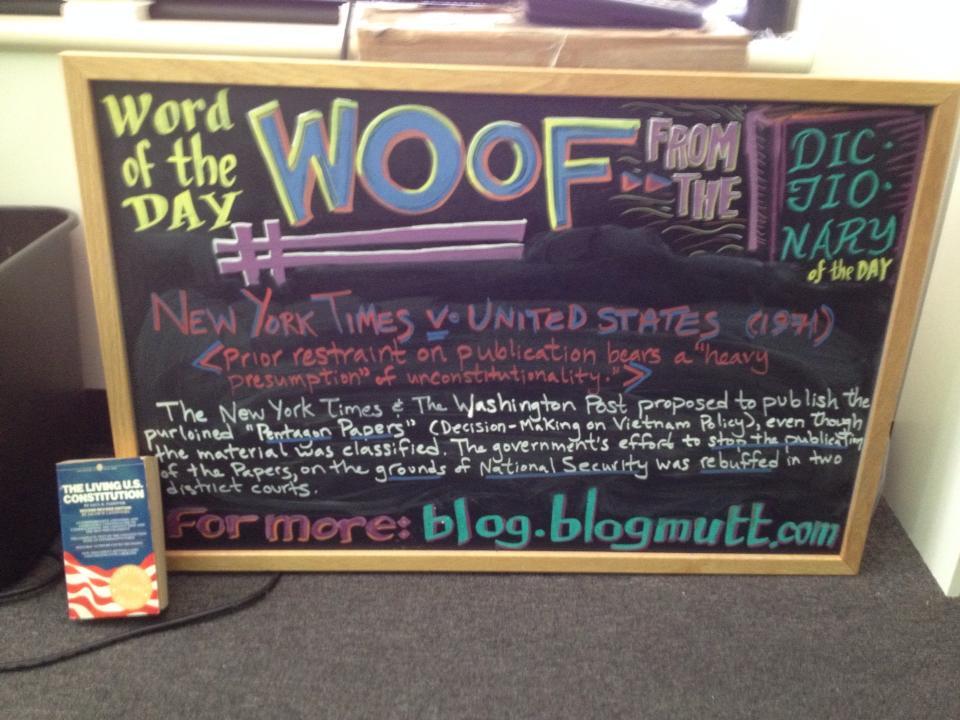 Word
of the
DAY
WOOF
FROM
THE
DIC·
TIO·
NARY
of the DAY
#
NEW YORK TIMES v. UNITED STATES (1971)
<Prior restraint on publication bears a "heavy
presumption" of unconstitutionality.">
The New York Times & The Washington Post proposed to publish the
purloined "Pentagon Papers" (Decision-Making on Vietnam Policy), even though
the material was classified. The government's effort to stop the publication
of the Papers, on the grounds of National Security was rebuffed in two
district courts.
For more: blog.blogmutt.com
THE LIVING U.S.
CONSTITUTION